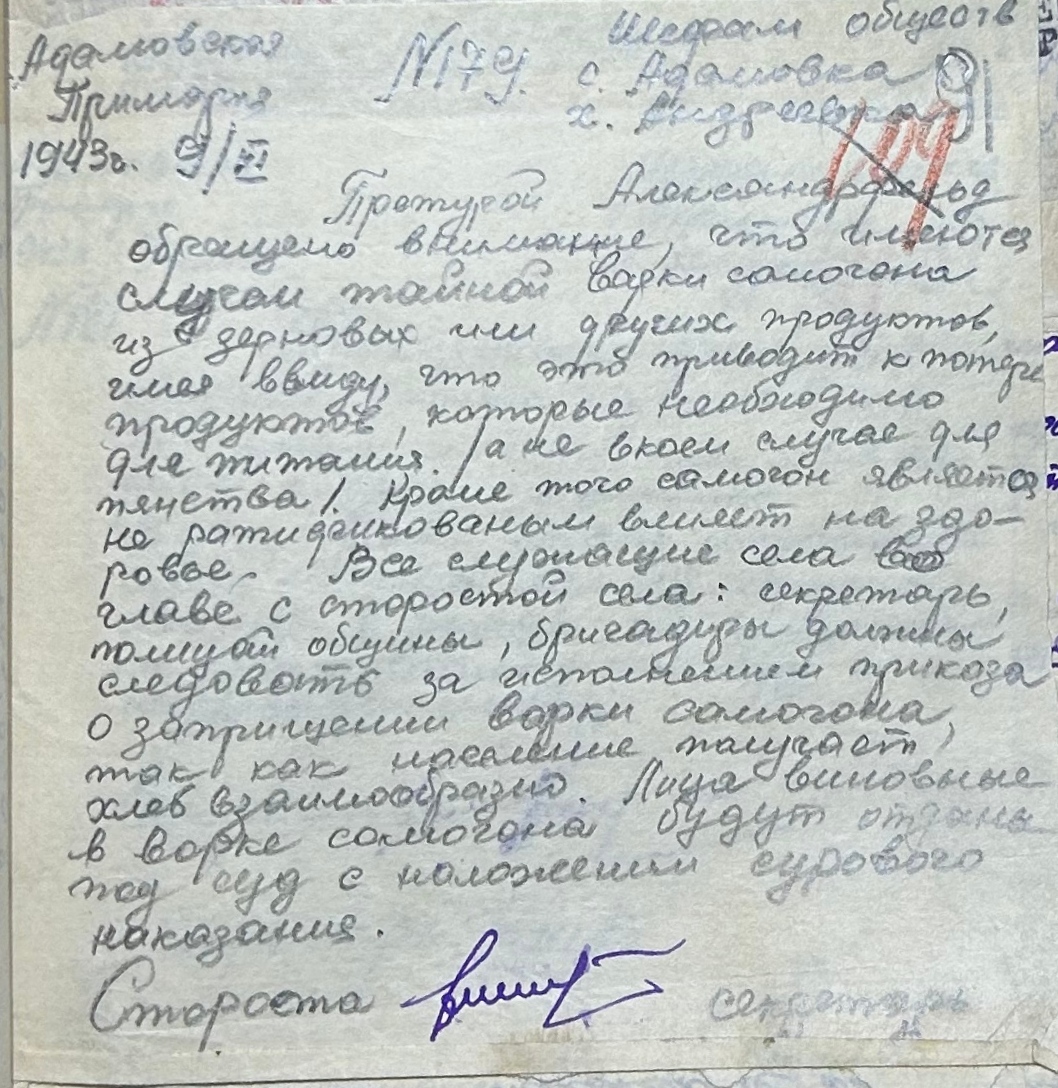 Адамовская
Примария
1943г. 9/XI
№179.
Шефам обществ
с. Адамовка
х. Андреевка
91
109
Претурой Александрфельд
обращено внимание, что имеются
случаи тайной варки самогона
из зерновых или других продуктов,
имея ввиду, что это приводит к потере
продуктов, которые необходимо
для питания. /а не вкоем случае для
пянства/. Кроме того самогон является
не ратификованым влияет на здо-
ровье. Все служащие села во
главе с старостой села: секретарь,
полицай общины, бригадиры должны
следовать за исполнением приказа
о заприщении варки самогона,
так как население получает
хлеб взаимообразно. Лица виновные
в варке самогона будут отданы
под суд с наложении сурового
наказания.
Староста секретарь